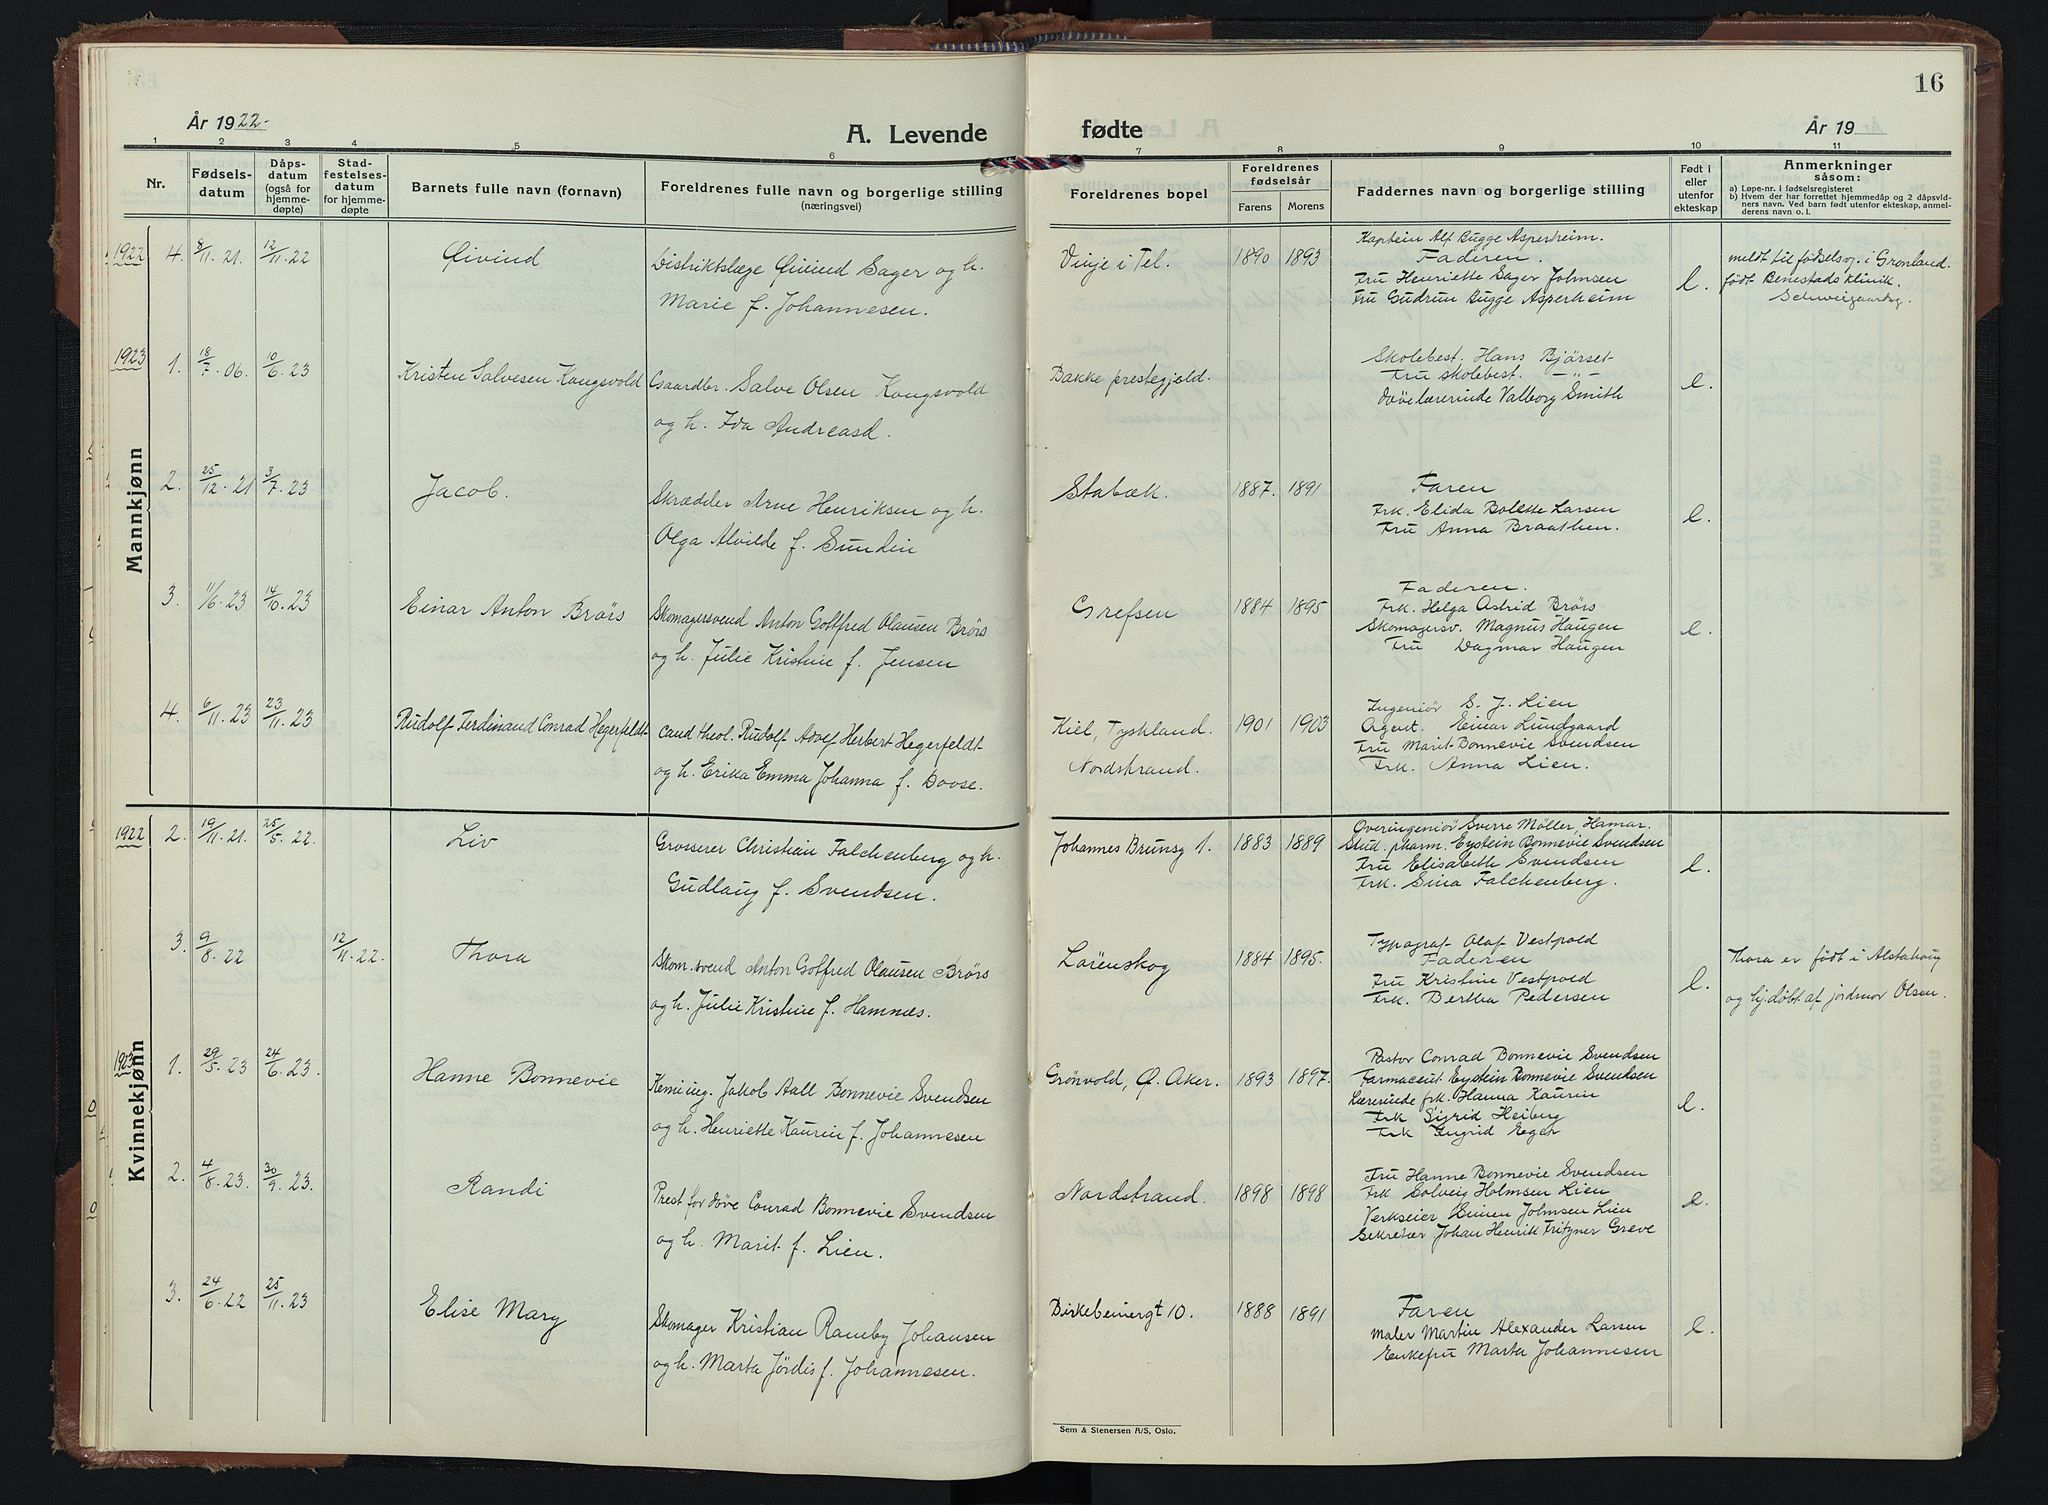 16
År 1922-
A. Levende
fødte
År 19
1 2 3 4 5 6 7 8 9 10 11
Nr.
Fødsels-
datum
Dåps-
datum
(også for
hjemme-
døpte)
Stad-
festelses-
datum
for hjemme-
døpte
Barnets fulle navn (fornavn)
Foreldrenes fulle navn og borgerlige stilling
(næringsvei)
Foreldrenes bopel
Foreldrenes
fødselsår
Farens Morens
Faddernes navn og borgerlige stilling
Født i
eller
utenfor
ekteskap
Anmerkninger
såsom:
a) Løpe-nr. i fødselsregisteret
b) Hvem der har forrettet hjemmedåp og 2 dåpsvid-
ners navn. Ved barn født utenfor ekteskap, anmel-
derens navn o. l.
Mannkjønn
1922
4. 8/11. 21. 12/11. 22 Øivind
Distriktslæge Øivind Sager og h.
Marie f. Johannesen.
Vinje i Tel. 1890 1893
Kaptein Alf Bugge Asperheim.
Faderen.
Fru Henriette Sager Johnsen
Fru Gudrun Bugge Asperheim
e.
meldt til fødselsop. i Grønland.
født Benestads klinik.
Schweigaardsg.
1923
1. 18/7. 06. 10/6. 23 Kristen Salvesen Kongsvold
Gaardbr. Salve Olsen Kongsvold
og h. Ida Andreasd.
Bakke prestegjeld.
Skolebest. Hans Bjørset
Fru skolebest. -"-
Døvelærerinde Valborg Smith
e.
2. 25/12. 21 3/7. 23 Jacob.
Skrædder Arne Henriksen og h.
Olga Alvilde f. Sundin
Stabæk. 1887. 1891
Faren
Frk. Elida Bolette Larsen
Fru Anna Braathen.
e.
3. 11/6. 23 14/10. 23 Einar Anton Brörs
Skomagersvend Anton Gottfred Olausen Brörs
og h. Julie Kristine f. Jensen
Grefsen 1884 1895
Faderen.
Frk. Helga Astrid Brörs
Skomagersv. Magnus Haugen
Fru Dagmar Haugen
e.
4. 6/11. 23 23/11. 23 Rudolf Ferdinand Conrad Hegerfeldt
cand theol. Rudolf Adolf Herbert Hegerfeldt
og h. Erika Emma Johanna f. Doose.
Kiel, Tyskland.
Nordstrand.
1901 1903
Ingeniør S. J. Lien
Agent. Einar Lundgaard
Fru Marit Bonnevie Svendsen
Frk. Anna Lien.
Kvinnekjønn
1922
2. 19/11. 21. 25/5. 22. Liv
Grosserer Christian Falchenberg og h.
Gudlaug f. Svendsen.
Johannes Brunsg 1. 1883 1889
Overingeniør Sverre Möller, Hamar.
Stud. pharm. Eystein Bonnevie Svendsen
Fru Elisabeth Svendsen
Frk. Sina Falchenberg.
e.
3. 9/8. 22 12/11. 22. Thora
Skom. svend Anton Gotfred Olausen Brörs
og h. Julie Kristine f. Hamnæs.
Lörenskog 1884 1895.
Typograf Olaf Vestpold
Faderen
Fru Kristine Vestpold
Frk. Bertha Pedersen
e.
Thora er født i Alstahoug
og hj. døbt af jordmor Olsen.
1923
1. 29/5. 23 24/6. 23. Hanne Bonnevie
Kemiing. Jakob Aall Bonnevie Svendsen
og h. Henriette Kaurin f. Johannesen
Grönvold, Ø. Aker. 1893 1897.
Pastor Conrad Bonnevie Svendsen
Farmaceut. Eystein Bonnevie Svendsen
Lærerinde frk. Hanna Kaurin
Frk Sigrid Heiberg
Frk Ingrid Eger
e.
2. 4/8. 23. 30/9. 23. Randi
Prest for døve Conrad Bonnevie Svendsen
og h. Marit f. Lien.
Nordstrand. 1898 1898
Fru Hanne Bonnevie Svendsen
Frk Solveig Holmsen Lien
Verkseier Einen Johnsen Lien
Sekretær Johan Henrik Fritzner Greve
e.
3. 24/6. 22 25/11. 23 Elise Mary
Skomager Kristian Ramby Johansen
og h. Marta Jördis f. Johannesen.
Birkebeinergt 10. 1888 1891
Faren
Maler Martin Alexander Larsen
Enkefru Marta Johannesen
e.
Sem & Stenersen A/S, Oslo.